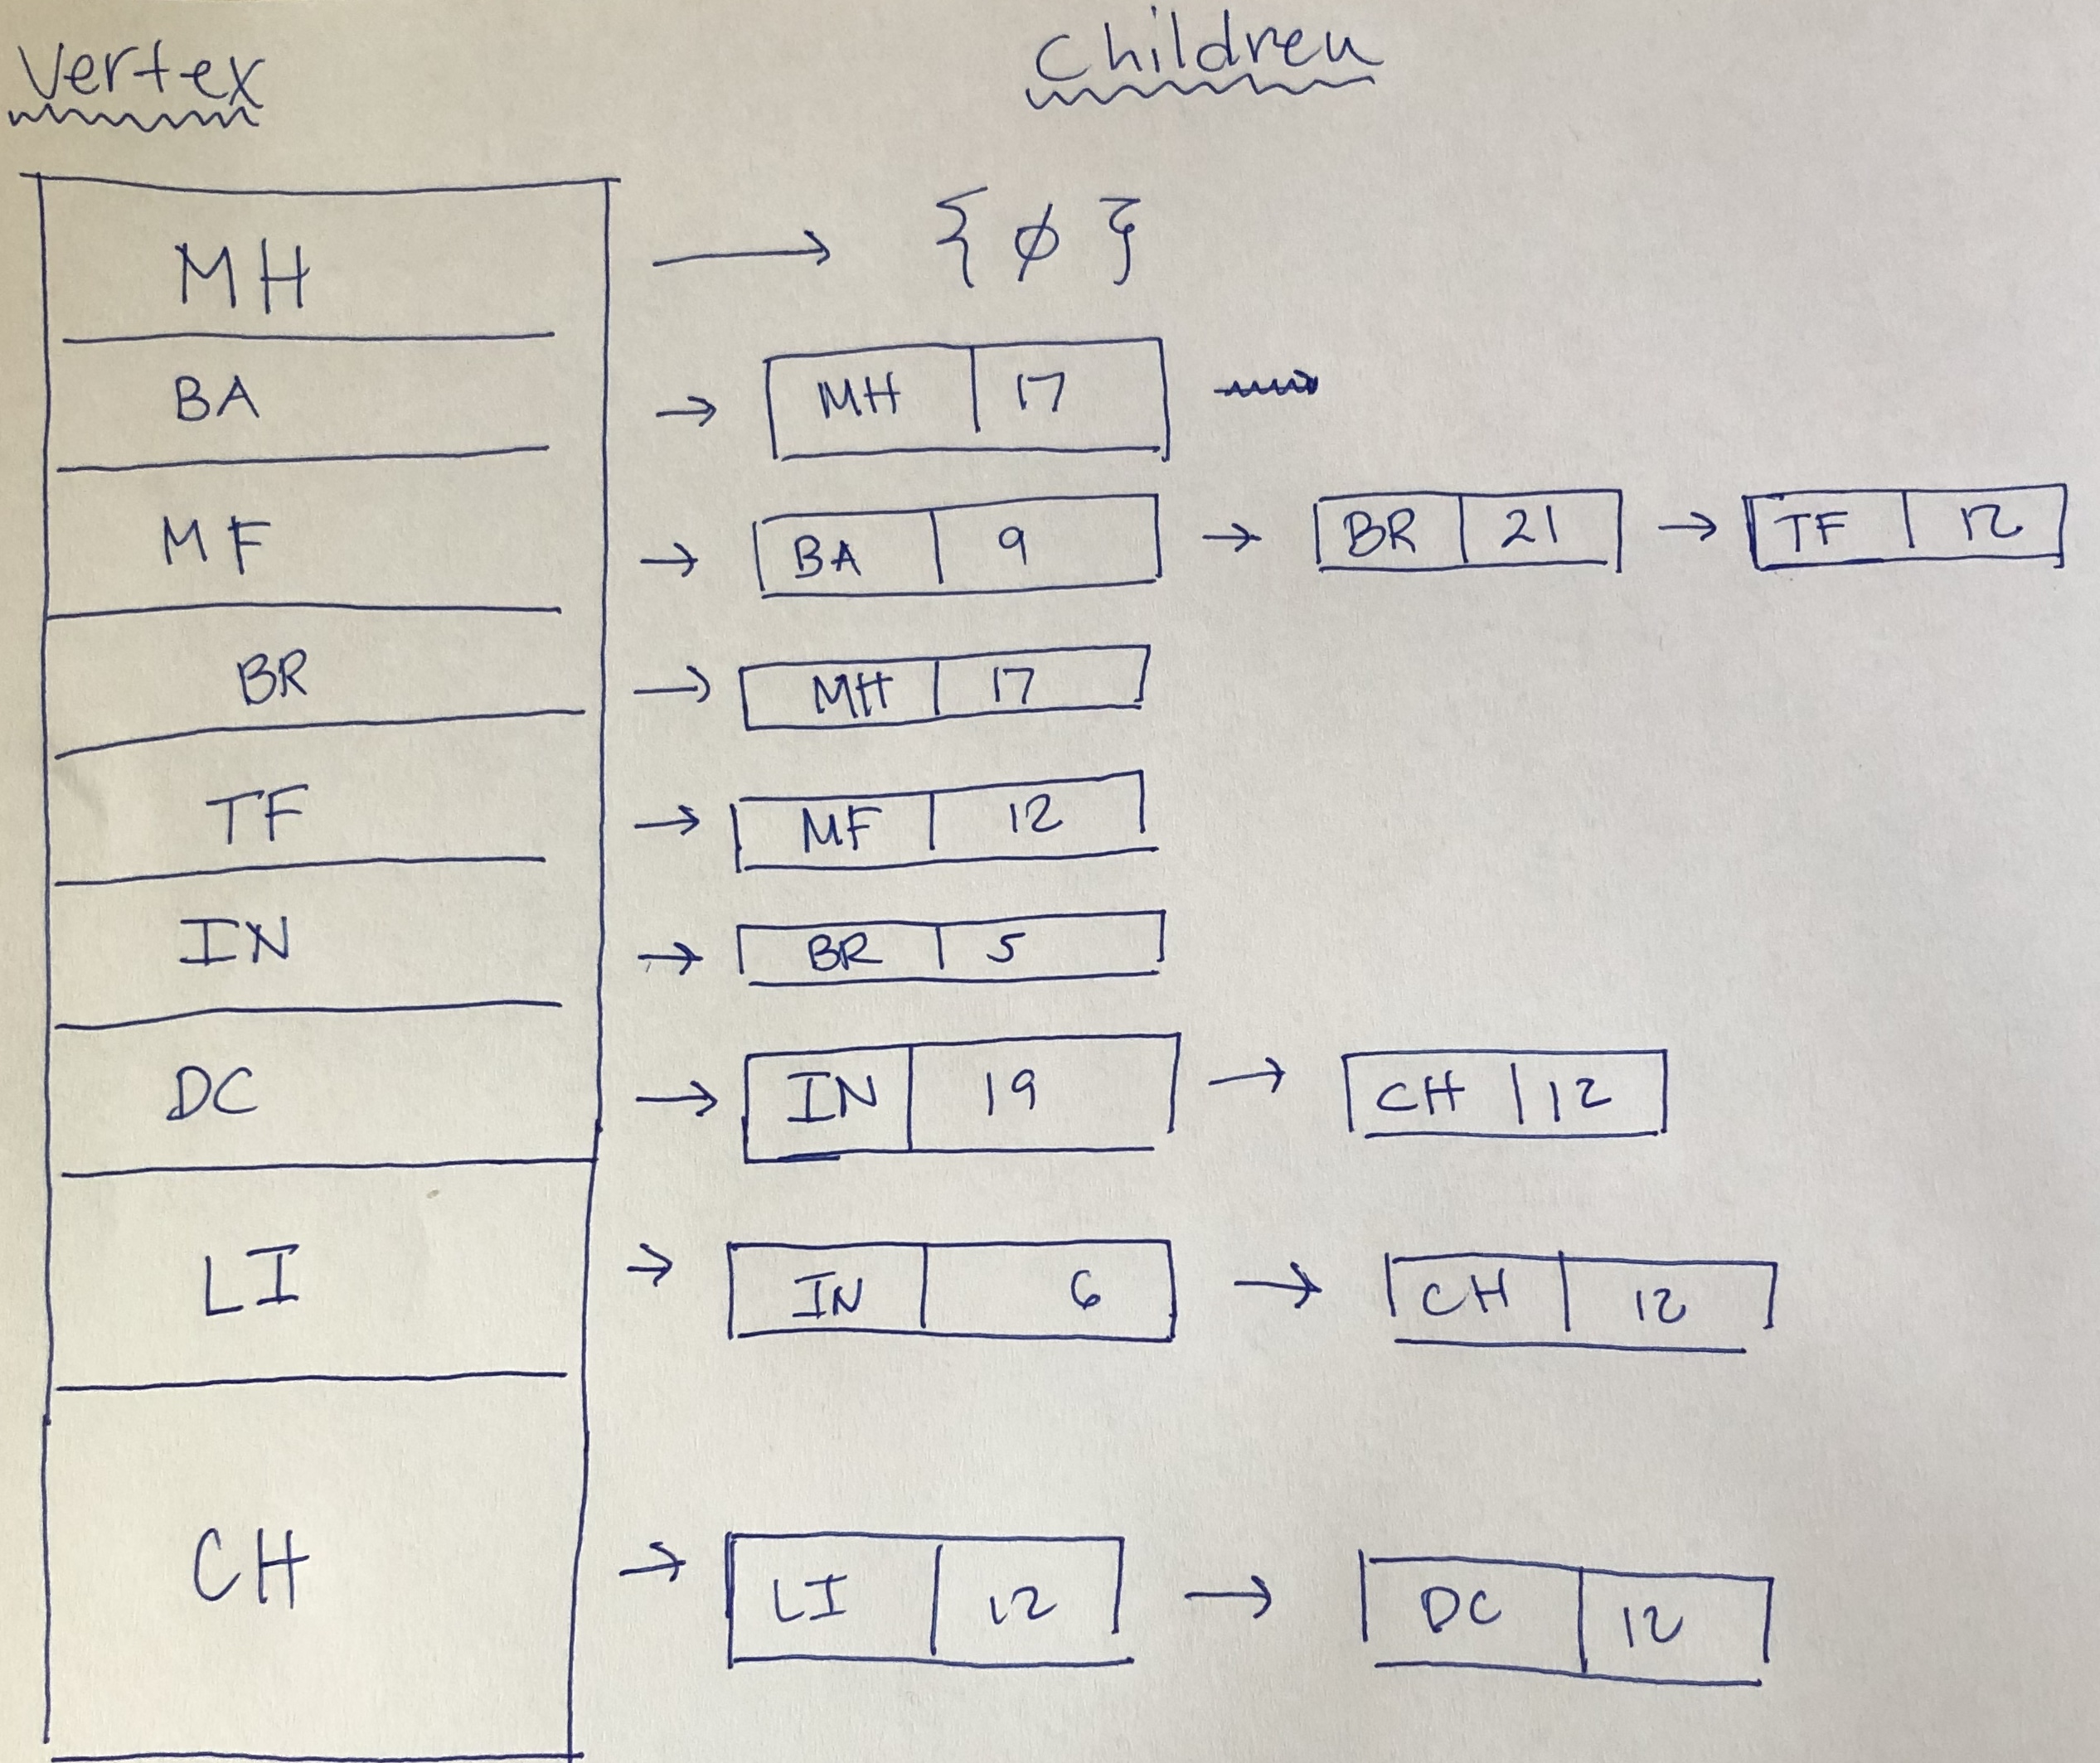 Vertex Children
MH → { ø }
BA → MH 17
MF → BA 9 → BR 21 → TF 12
BR → MH 17
TF → MF 12
IN → BR 5
DC → IN 19 → CH 12
LI → IN 6 → CH 12
CH → LI 12 → DC 12